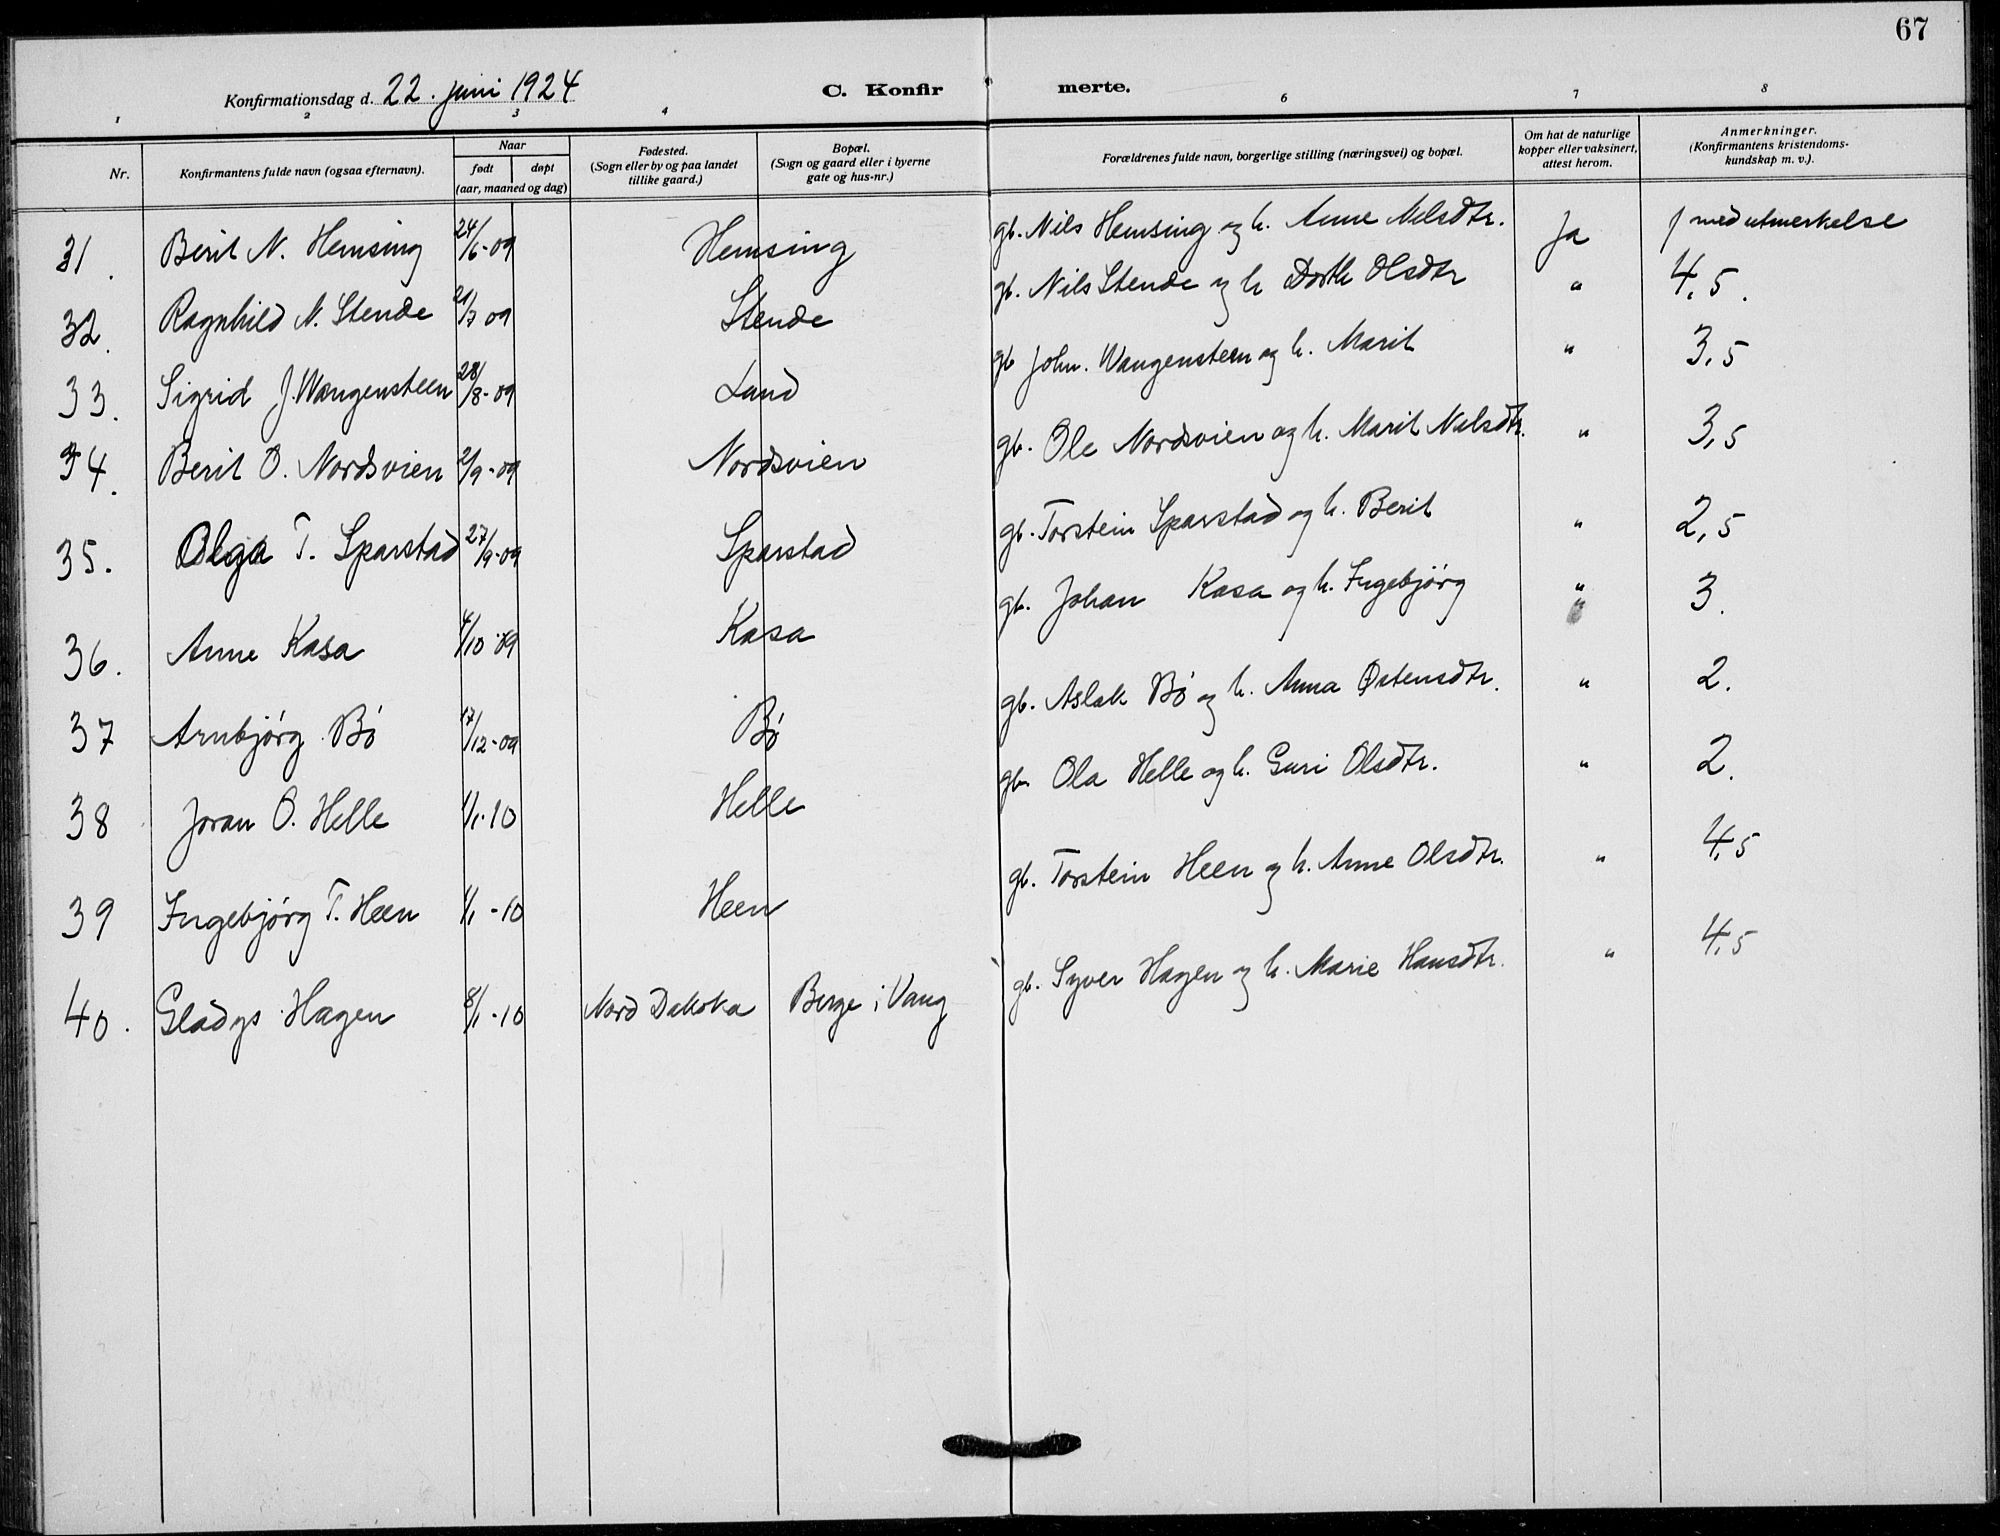 67
Konfirmationsdag d. 22. juni 1924
C. Konfirmerte.
1 2 3 4 6 7 8
Nr.
Konfirmantens fulde navn (ogsaa efternavn).
Naar
født døpt
(aar, maaned og dag)
Fødested.
(Sogn eller by og paa landet
tillike gaard.)
Bopæl.
(Sogn og gaard eller i byerne
gate og hus-nr.)
Forældrenes fulde navn, borgerlige stilling (næringsvei) og bopæl.
Om hat de naturlige
kopper eller vaksinert,
attest herom.
Anmerkninger.
(Konfirmantens kristendoms-
kundskap m. v.).
31. Berit N. Hemsing 24/6-09 Hemsing gb. Nils Hemsing og h. Anne Nilsdtr. Ja 1 med utmerkelse
32. Ragnhild N. Stende 21/7 09 Stende gb. Nils Stende og h Dorth Olsdtr " 4,5.
33. Sigrid J. Wangensteen 28/8-09 Lund gb John. Wangensteen og h. Marit " 3,5
34. Berit O. Nordsvien 2/9-09 Nordsvien gb. Ole Nordsvien og h. Marit Nilsdtr. " 3,5
35. Olga T. Sparstad 27/9-09 Sparstad gb. Torstein Sparstad og h. Berit " 2,5
36. Anne Kasa 4/10-09 Kasa gb. Johan Kasa og h. Ingebjørg " 3.
37 Arnbjørg Bø 17/12-09 Bø gb. Aslak Bø og h. Anna Østensdtr. " 2.
38 Joran O. Helle 1/1-10 Helle gb. Ola Helle og h. Guri Olsdtr. " 2.
39 Ingebjørg T. Heen 1/1-10 Heen gb. Torstein Heen og h. Anne Olsdtr. " 4,5
40. Gladys Hagen 8/1-10 Nord Dakota Berge i Vang gb. Syver Hagen og h. Marie Hansdtr. " 4,5